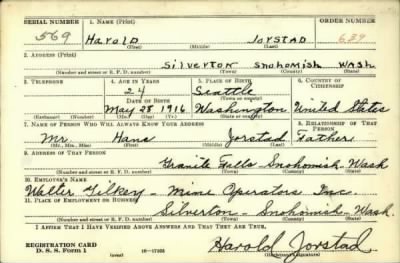 SERIAL NUMBER 1. NAME (Print) ORDER NUMBER
569 Harold Jorstad 639
(First) (Middle) (Last)
2. ADDRESS (Print)
Silverton Snohomish Wash
(Number and street or R. F. D. number) (Town) (County) (State)
3. TELEPHONE 4. AGE IN YEARS 5. PLACE OF BIRTH 6. COUNTRY OF CITIZENSHIP
24 Seattle
DATE OF BIRTH (Town or county)
May 28 1916 Washington United States
(Exchange) (Number) (Mo.) (Day) (Yr.) (State or country)
7. NAME OF PERSON WHO WILL ALWAYS KNOW YOUR ADDRESS 8. RELATIONSHIP OF THAT PERSON
Mr Hans Jorstad Father
(Mr., Mrs., Miss) (First) (Middle) (Last)
9. ADDRESS OF THAT PERSON
Granite Falls Snohomish. Wash
(Number and street or R. F. D. number) (Town) (County) (State)
10. EMPLOYER'S NAME
Walter Gilkey - Mine Operators Inc.
11. PLACE OF EMPLOYMENT OR BUSINESS
Silverton - Snohomish - Wash.
(Number and street or R. F. D. number) (Town) (County) (State)
I AFFIRM THAT I HAVE VERIFIED ABOVE ANSWERS AND THAT THEY ARE TRUE.
REGISTRATION CARD
D. S. S. Form 1 16-17105 Harold Jorstad
(Registrant's signature)